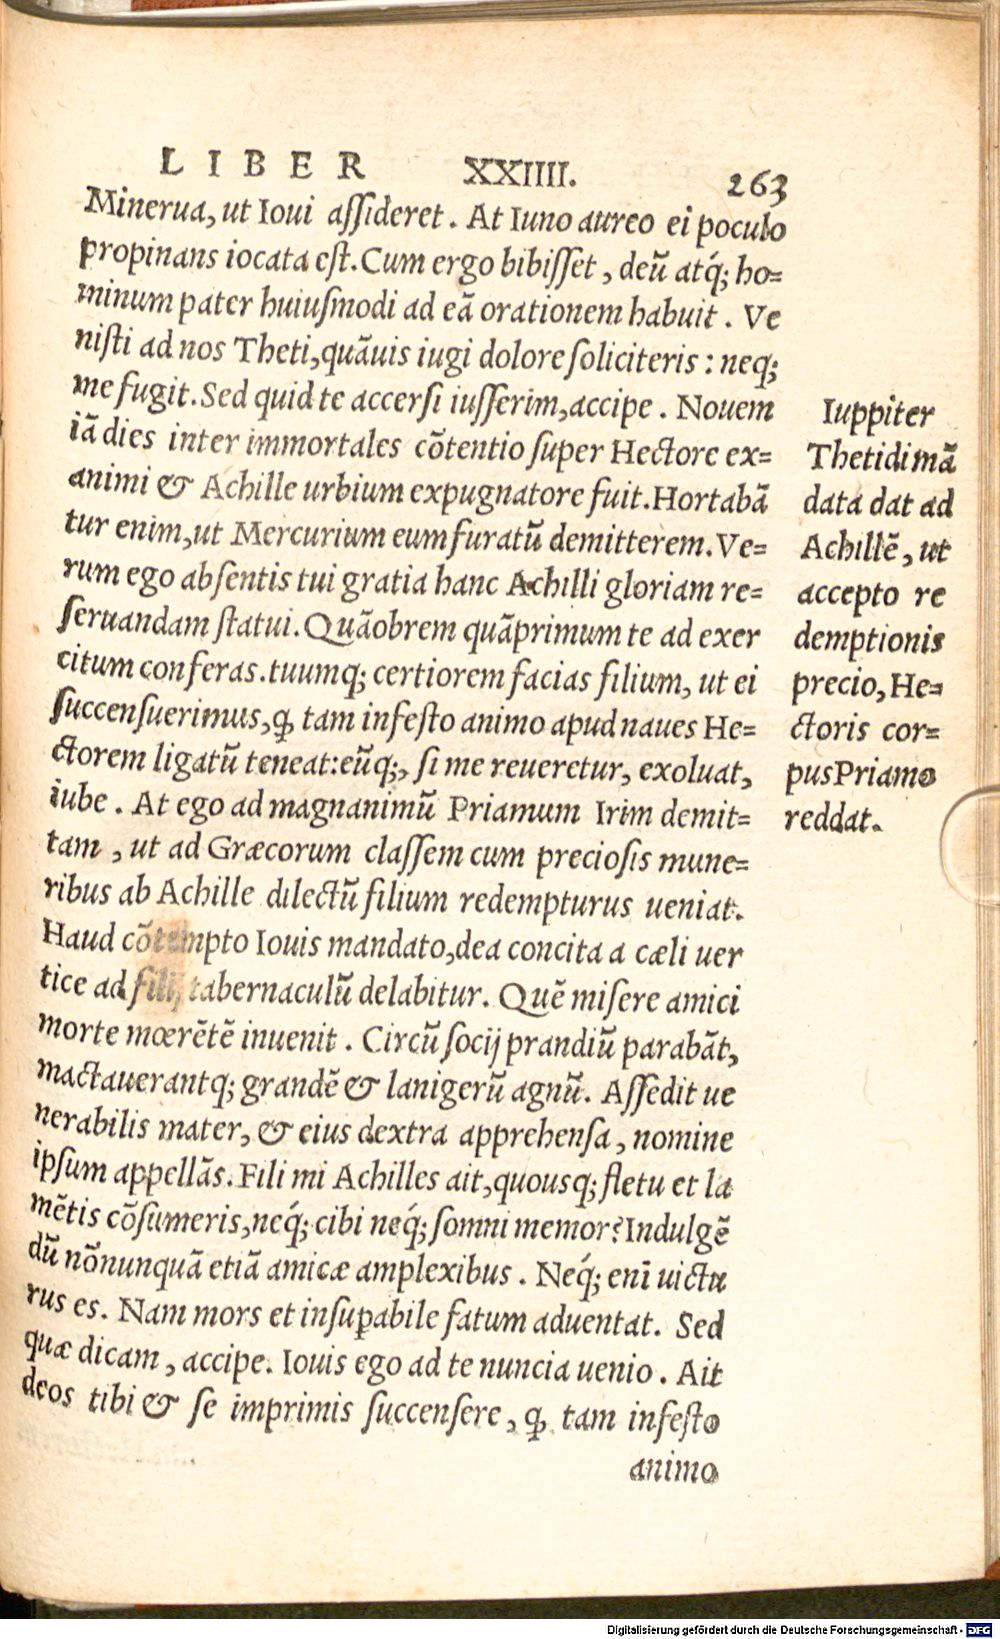 LIBER XXIIII. 263
Minerua, ut Ioui aſsideret. At Iuno aureo ei poculo
propinans iocata eſt. Cum ergo bibiſſet, deū atq́; ho=
minum pater huiuſmodi ad eā orationem habuit. Ve
niſti ad nos Theti, quāuis iugi dolore ſoliciteris: neq;
me fugit. Sed quid te accerſi iuſſerim, accipe. Nouem
iā dies inter immortales cōtentio ſuper Hectore ex=
animi & Achille urbium expugnatore fuit. Hortabā
tur enim, ut Mercurium eum furatū demitterem. Ve=
rum ego abſentis tui gratia hanc Achilli gloriam re=
ſeruandam ſtatui. Quāobrem quāprimum te ad exer
citum conferas. tuumq; certiorem facias filium, ut ei
ſuccenſuerimus, ꝙ tam infeſto animo apud naues He=
ctorem ligatū teneat: eūq;, ſi me reueretur, exoluat,
iube. At ego ad magnanimū Priamum Irim demit=
tam, ut ad Græcorum claſſem cum precioſis mune=
ribus ab Achille dilectū filium redempturus ueniat.
Haud cōtempto Iouis mandato, dea concita a cæli uer
tice ad filij tabernaculū delabitur. Quē miſere amici
morte mœrētē inuenit. Circū ſocij prandiū parabāt,
mactauerantq; grandē & lanigerū agnū. Aſſedit ue
nerabilis mater, & eius dextra apprehenſa, nomine
ipſum appellās. Fili mi Achilles ait, quouſq; fletu et la
mētis cōſumeris, neq́; cibi neq́; ſomni memor? Indulgē
dū nōnunquā etiā amicæ amplexibus. Neq́; enī uictu
rus es. Nam mors et inſuꝑabile fatum aduentat. Sed
quæ dicam, accipe. Iouis ego ad te nuncia uenio. Ait
deos tibi & ſe imprimis ſuccenſere, ꝙ tam infeſto
animo
Iuppiter
Thetidi mā
data dat ad
Achillē, ut
accepto re
demptionis
precio, He=
ctoris cor=
pus Priamo
reddat.
Digitalisierung gefördert durch die Deutsche Forschungsgemeinschaft - DFG